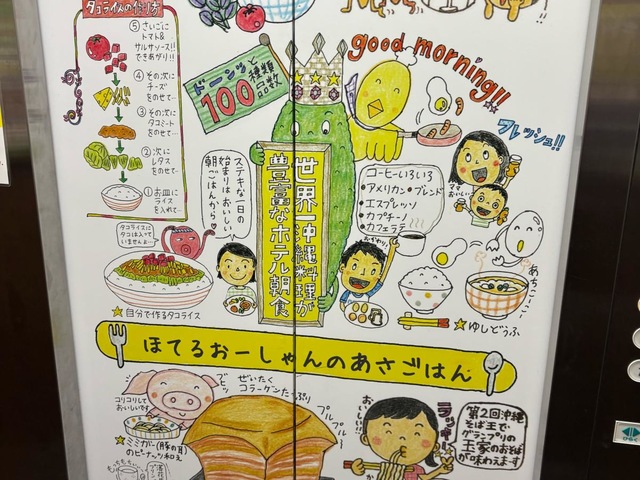 タコライスの作り方
⑤さいごに
トマト&
サルサソース!!
できあがり!!
④その次に
チーズ
をのせて…
③その次に
タコミート
をのせて…
②次に
レタス
をのせて…
①お皿に
ライス
を入れて…
ドーンッと
種類
品数
100
good morning!!
フレッシュ!!
ママ
おいしい
ステキな一日の
始まりはおいしい
朝ごはんから♡
世界一沖縄料理が
豊富なホテル朝食
コーヒーいろいろ
•アメリカン•ブレンド
•エスプレッソ
•カプチーノ
•カフェラテ
おかわり!
タコライスに
タコは入って
いませんよ…
★自分で作るタコライス
あちこーこー
★ゆしどうふ
ほてるおーしゃんのあさごはん
コリコリして
おいしいです
★ミミガー(豚の耳)
のピーナッツ和え
ぜいたく
コラーゲンたっぷり
プルプル
プルプル~
おいしい!!
ラッキー
第2回沖縄
そば王で
グランプリの
玉家のおそば
が味わえます